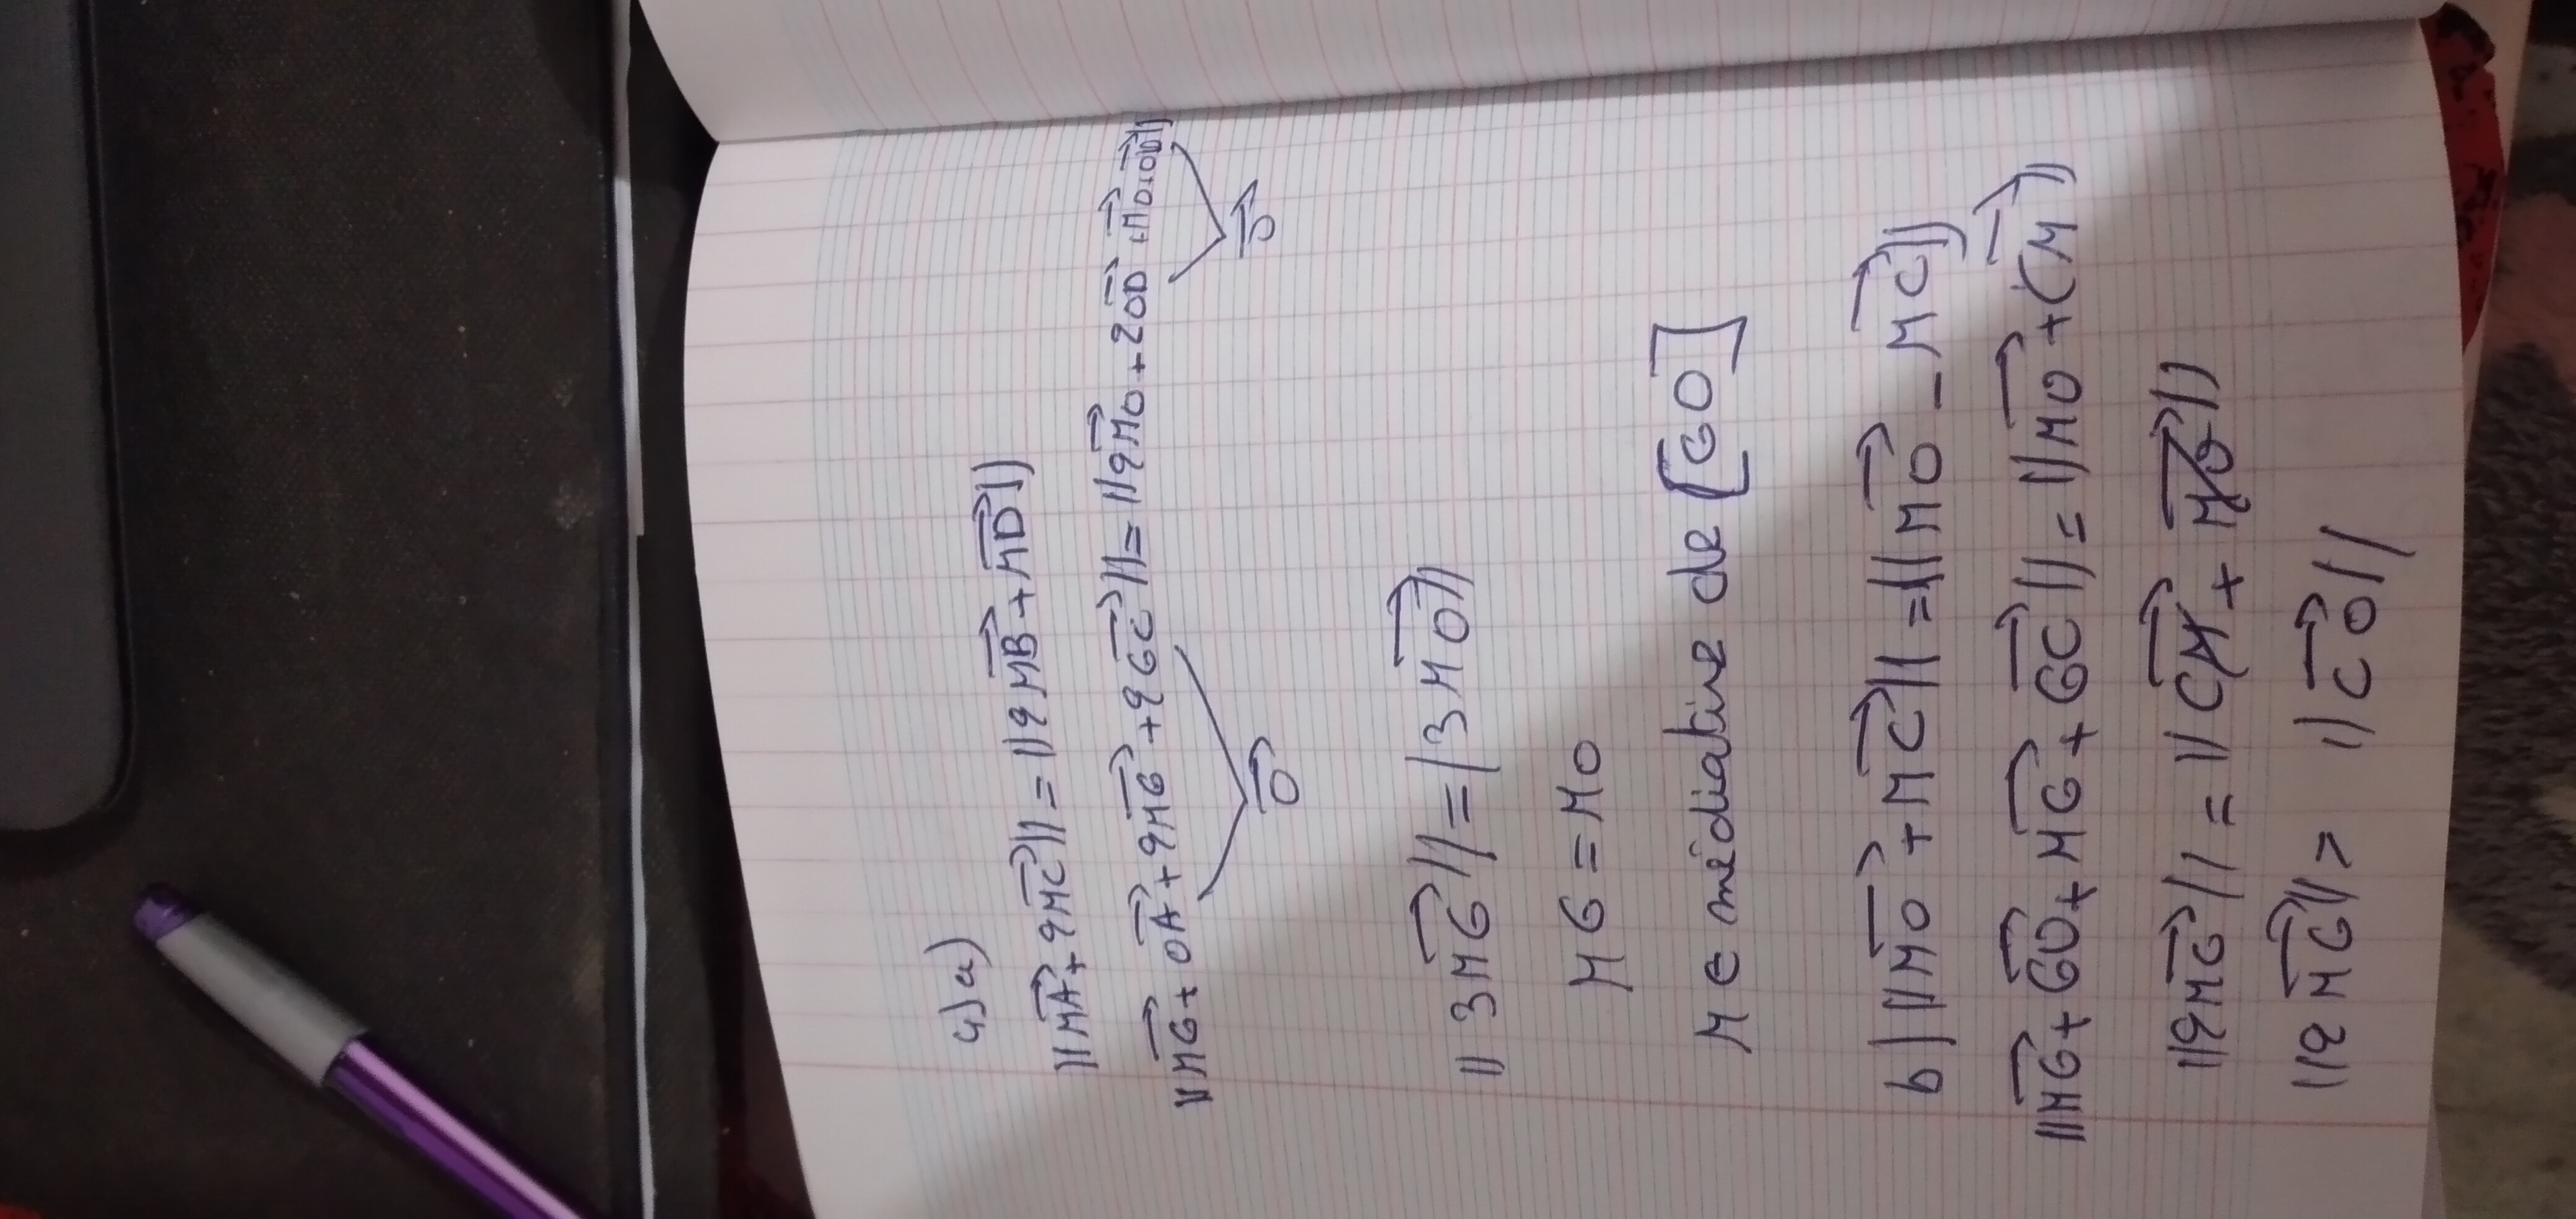 4) a)
||MA→ + 2MC→|| = ||2MB→ + MD→||
||MG→ + OA→ + 2MG→ + 2GC→|| = ||2MO→ + 2OD→ + MO→ + OD→||
0→ 0→
||3MG→|| = |3MO→||
MG = MO
M ∈ médiative de [GO]
b) ||MO→ + MC→|| = ||MO→ - MC→||
||MG→ + GO→ + MG→ + GC→|| = ||MO→ + CM→||
||2MG→|| = ||CM→ + MO→||
||2MG→|| > ||CO→||